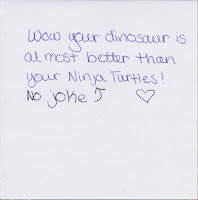 Wow your dinosaur is
almost better than
your Ninja Turtles!
No joke J ♡